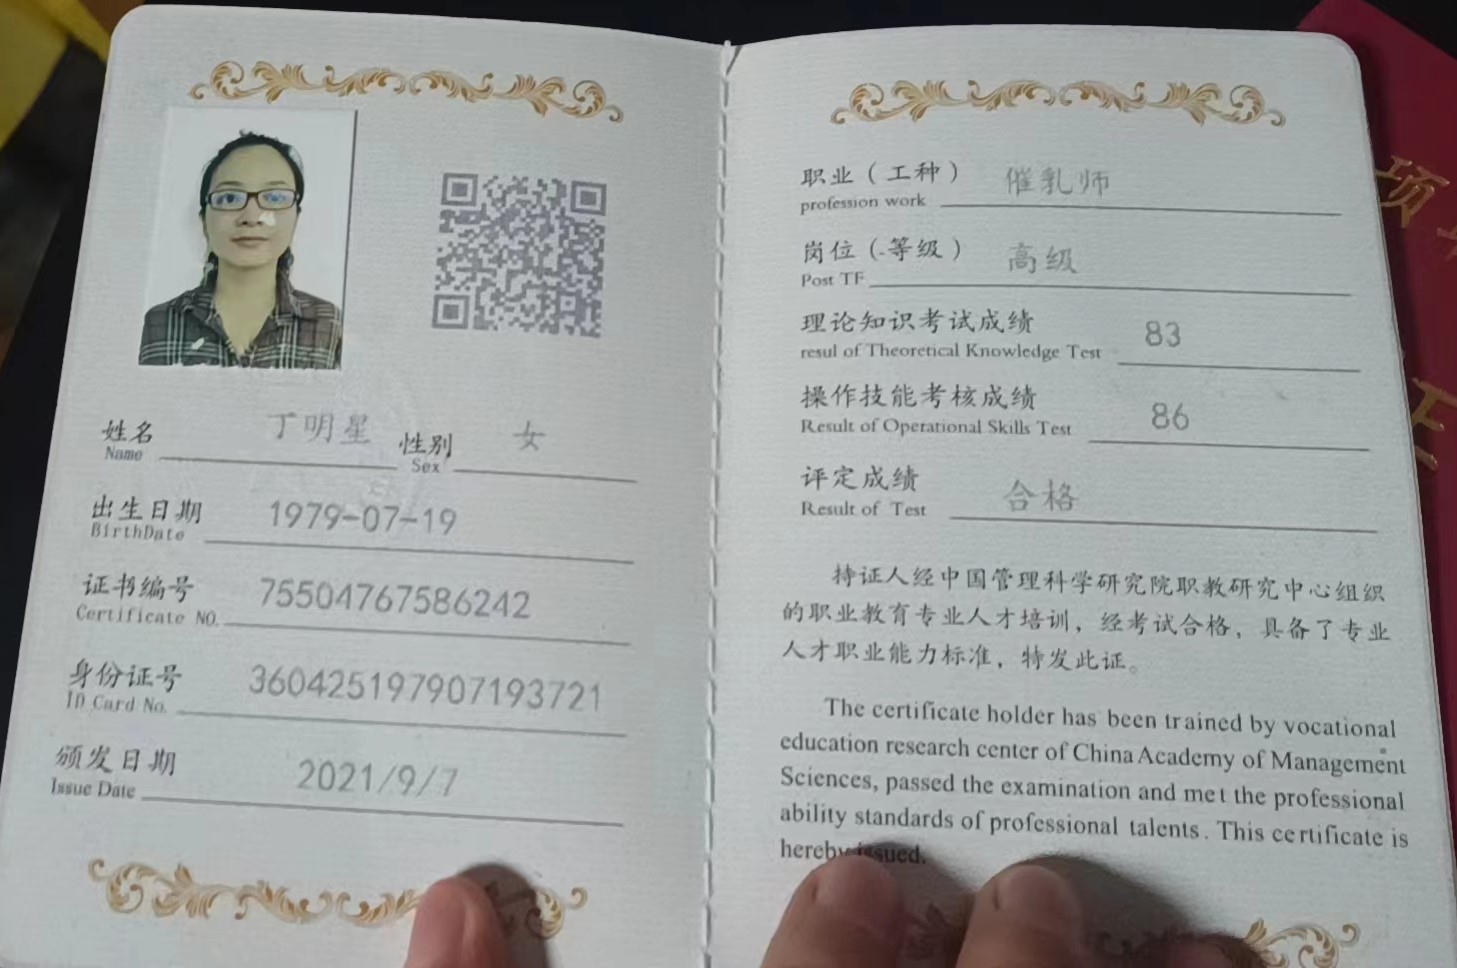 姓名 丁明星 性别 女
Name Sex
出生日期 1979-07-19
BirthDate
证书编号 75504767586242
Certificate NO.
身份证号 360425197907193721
ID Card No.
颁发日期 2021/9/7
Issue Date
职业（工种） 催乳师
profession work
岗位（-等级） 高级
Post TF
理论知识考试成绩 83
resul of Theoretical Knowledge Test
操作技能考核成绩 86
Result of Operational Skills Test
评定成绩 合格
Result of Test
持证人经中国管理科学研究院职教研究中心组织
的职业教育专业人才培训，经考试合格，具备了专业
人才职业能力标准，特发此证。
The certificate holder has been trained by vocational
education research center of China Academy of Management
Sciences, passed the examination and met the professional
ability standards of professional talents. This certificate is
hereby issued.
项